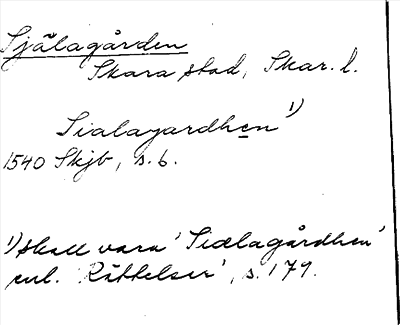 Själagården
Skara stad, Skar. l.
Sialagardhen 1)
1540 Skjb, s. 6.
1) skall vara 'Siælagårdhen'
enl. 'Rättelser', s. 179.